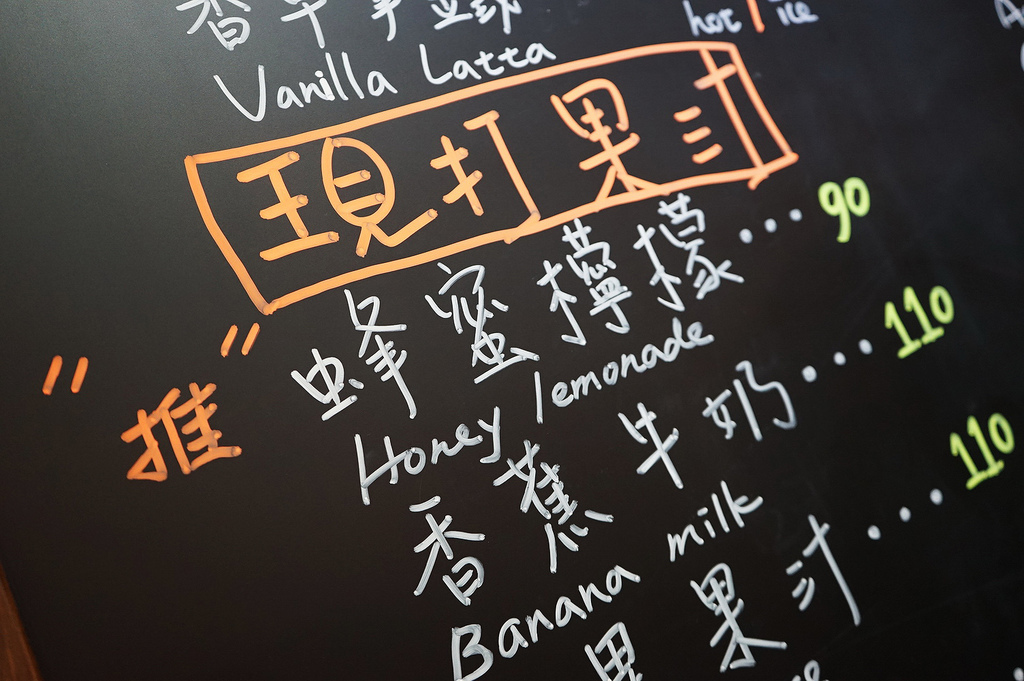 香草拿鐵
Vanilla Latta
hot / ice
現打果汁
蜂蜜檸檬...90
Honey lemonade
"推"
香蕉牛奶...110
Banana milk
果汁...110